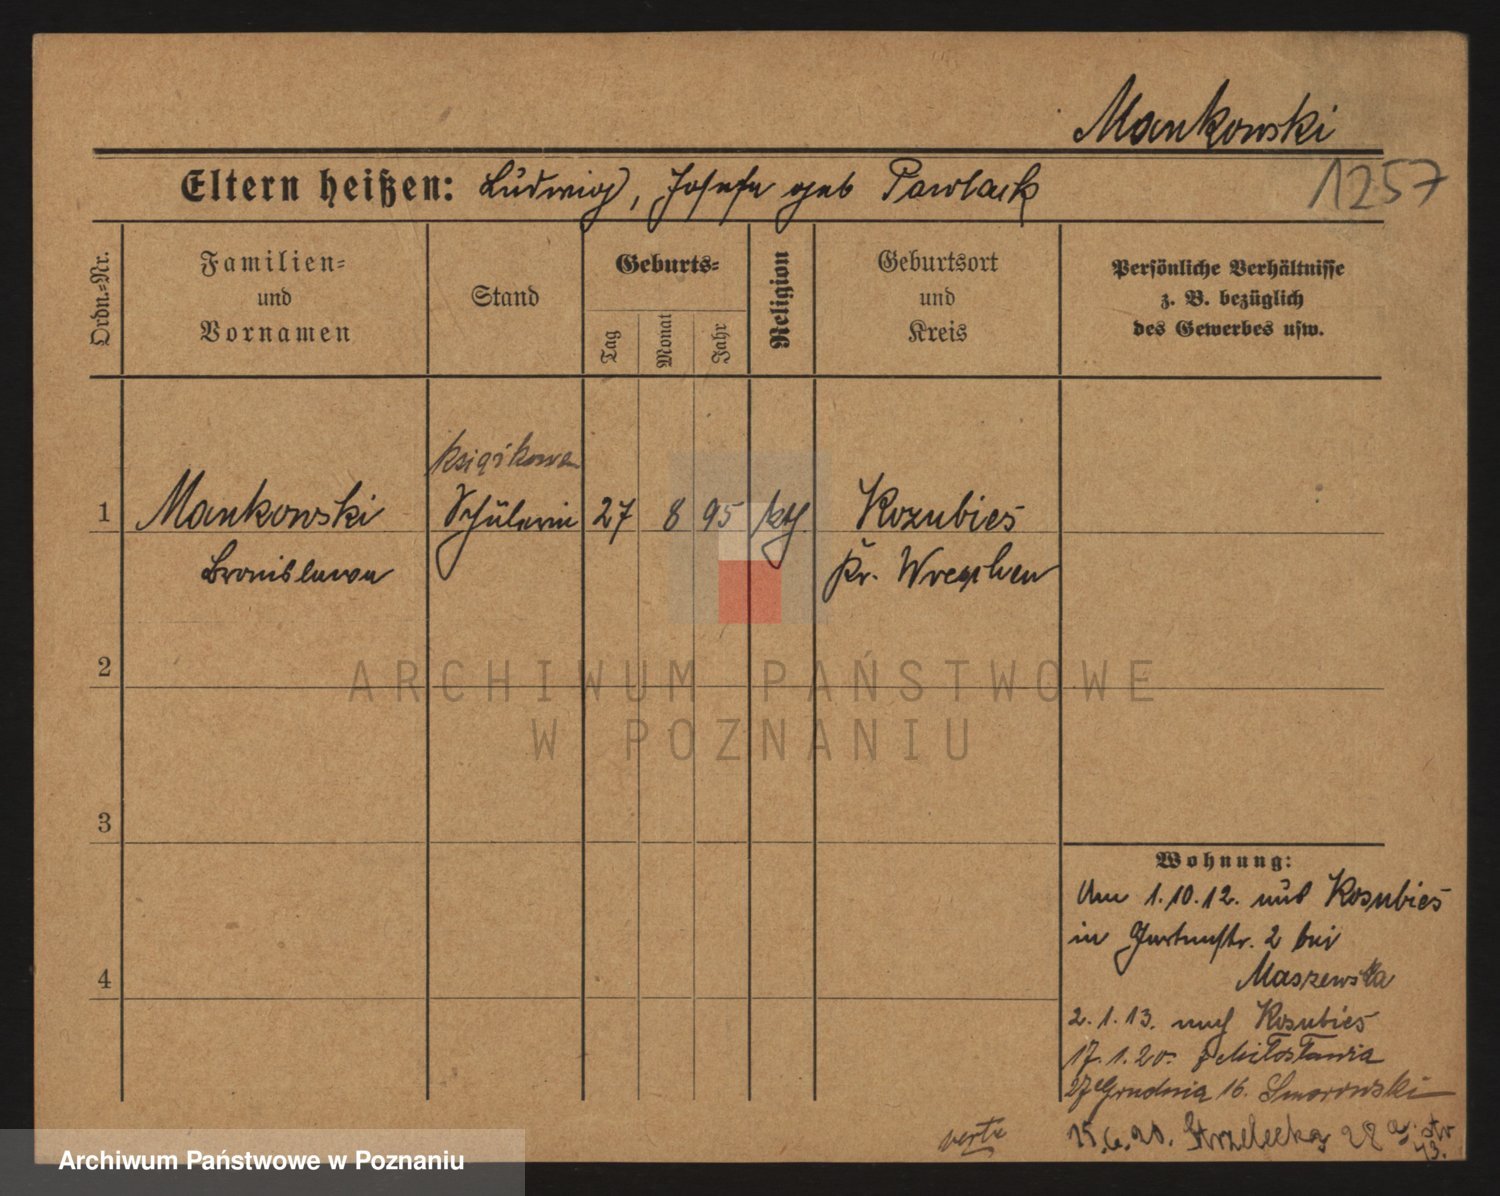 Mankowski
1257
Eltern heißen: Ludwig, Josefa geb Pawlack
Ordn.-Nr.
Familien-
und
Vornamen
Stand
Geburts-
Tag
Monat
Jahr
Religion
Geburtsort
und
Kreis
Persönliche Verhältnisse
z. B. bezüglich
des Gewerbes usw.
książkowa
1 Mankowski Schülerin 27 8 95 kth Kozubies
Bronislawa Kr. Wreschen
2
3
4
ARCHIWUM PAŃSTWOWE
W POZNANIU
Wohnung:
Am 1.10.12. aus Kosubies
in Gartenstr. 2 bei
Maszewska
2.1.13. nach Kosubies
17.1.20. z Miłosławia
27 Grudnia 16. Smorowski
verte
15.6.20. Strzelecka 28
Archiwum Państwowe w Poznaniu